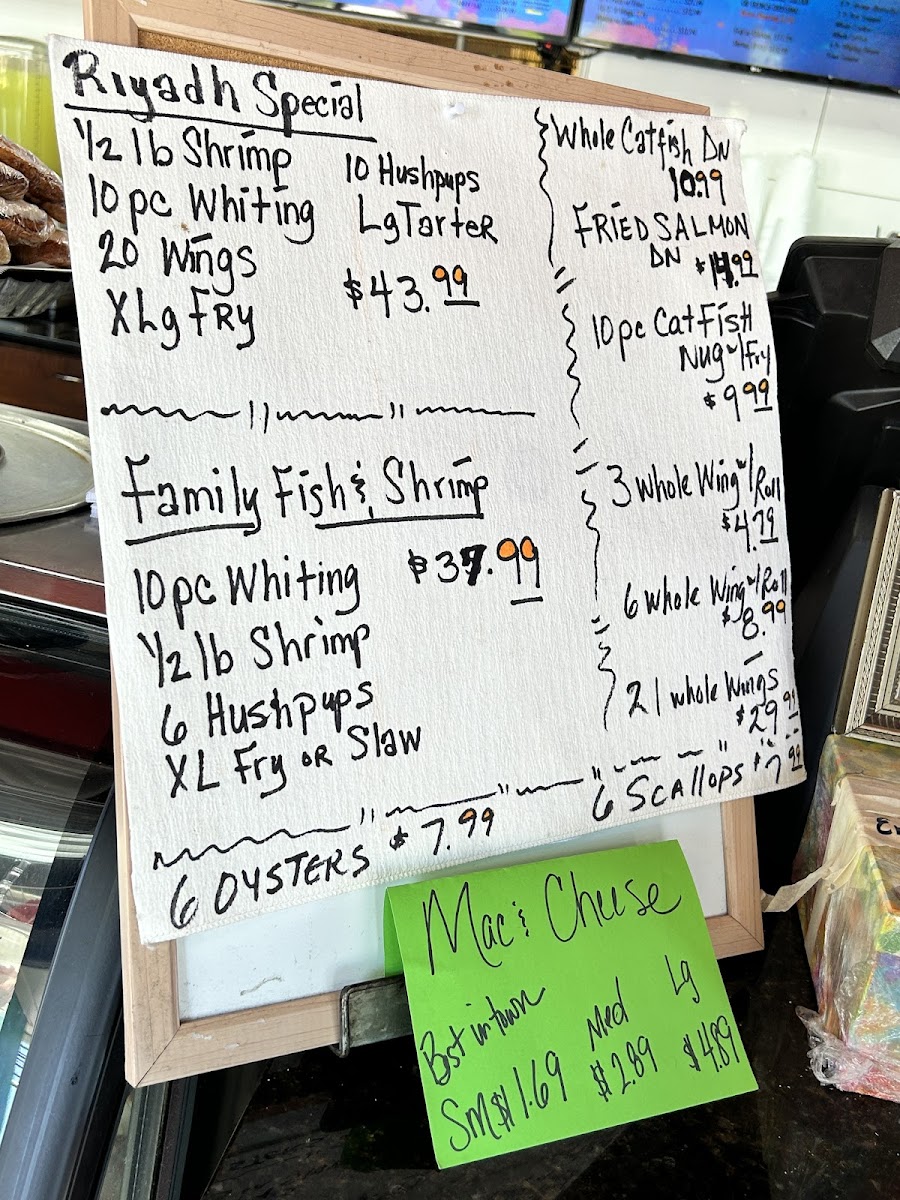 Riyadh Special
1/2 lb Shrimp
10 pc Whiting
20 Wings
XLg FRy
10 Hushpups
Lg TarteR
$43.99
Family Fish & Shrimp
10 pc Whiting
$37.99
1/2 lb Shrimp
6 Hushpups
XL Fry OR Slaw
6 OYSTERS $7.99
Whole Catfish DN
10.99
FRIED SALMON
DN $14.99
10 pc CatFisH
Nug w/Fry
$9.99
3 Whole Wing w/Roll
$4.79
6 whole Wing w/Roll
$8.99
21 whole Wings
$29.99
6 SCAllOPS $7.99
Mac & Cheese
Best in town
Sm $1.69
Med
$2.89
Lg
$4.89